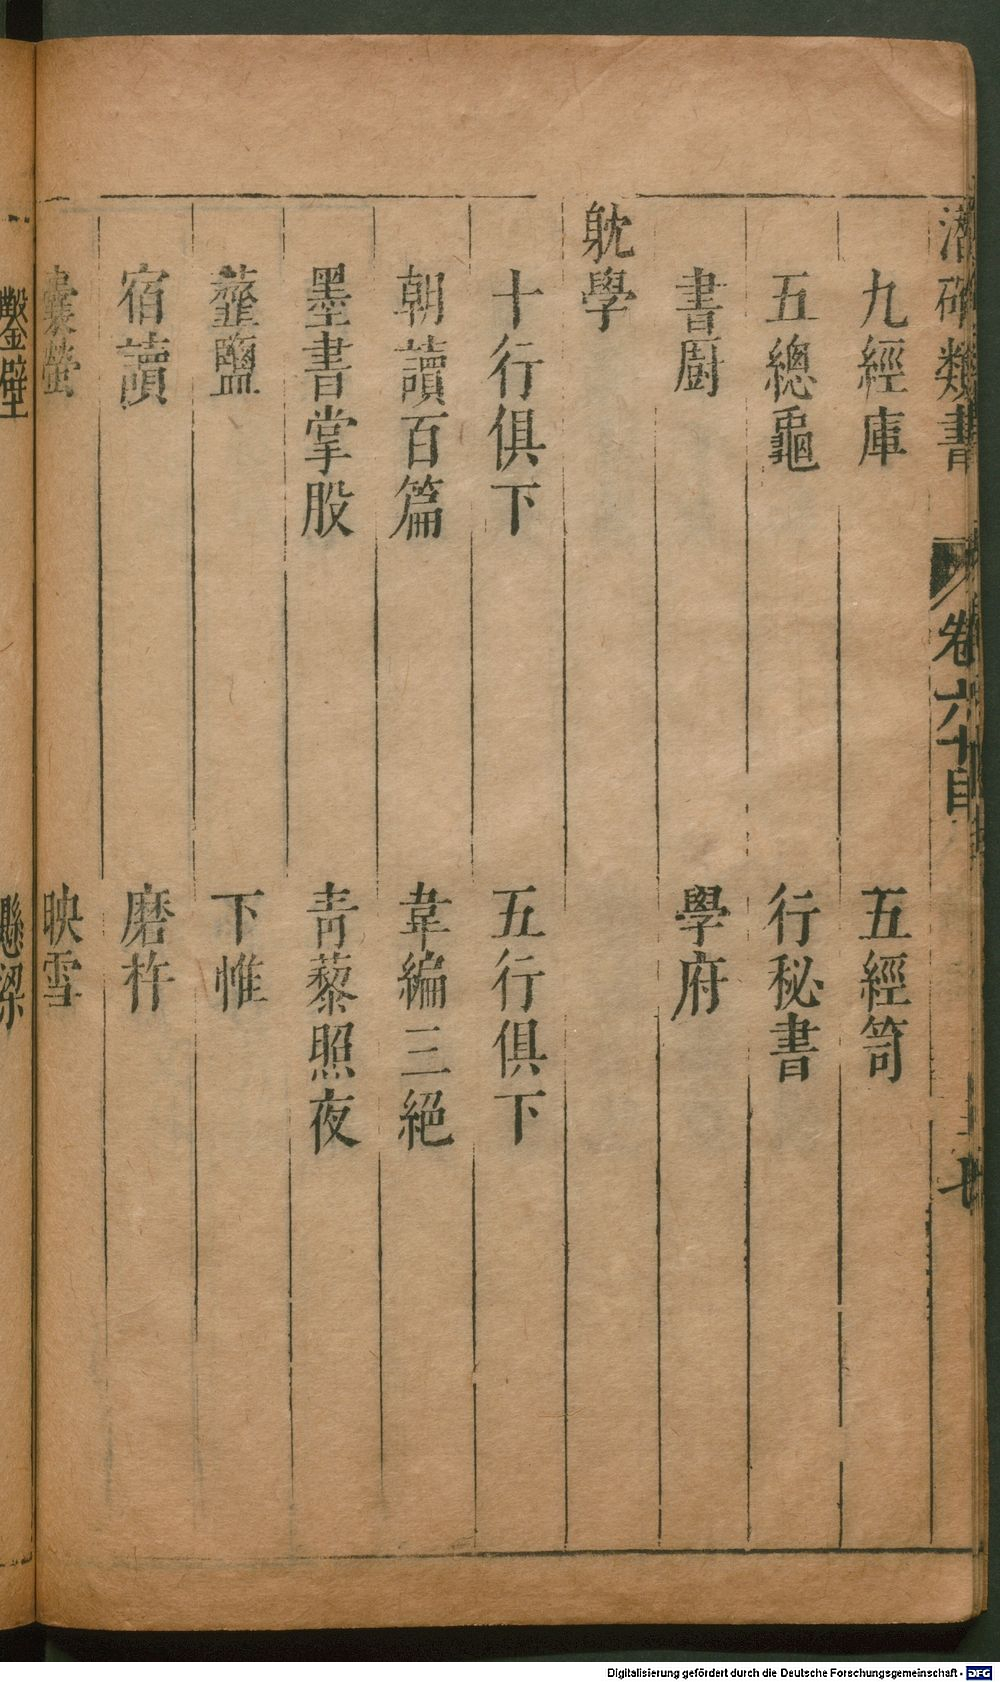 潛確類書
卷六十目
七
九經庫 五經笥
五總龜 行秘書
書廚 學府
躭學
十行俱下 五行俱下
朝讀百篇 韋編三絕
墨書掌股 青藜照夜
虀鹽 下惟
宿讀 磨杵
囊螢 映雪
鑿壁 懸梁
Digitalisierung gefördert durch die Deutsche Forschungsgemeinschaft - DFG